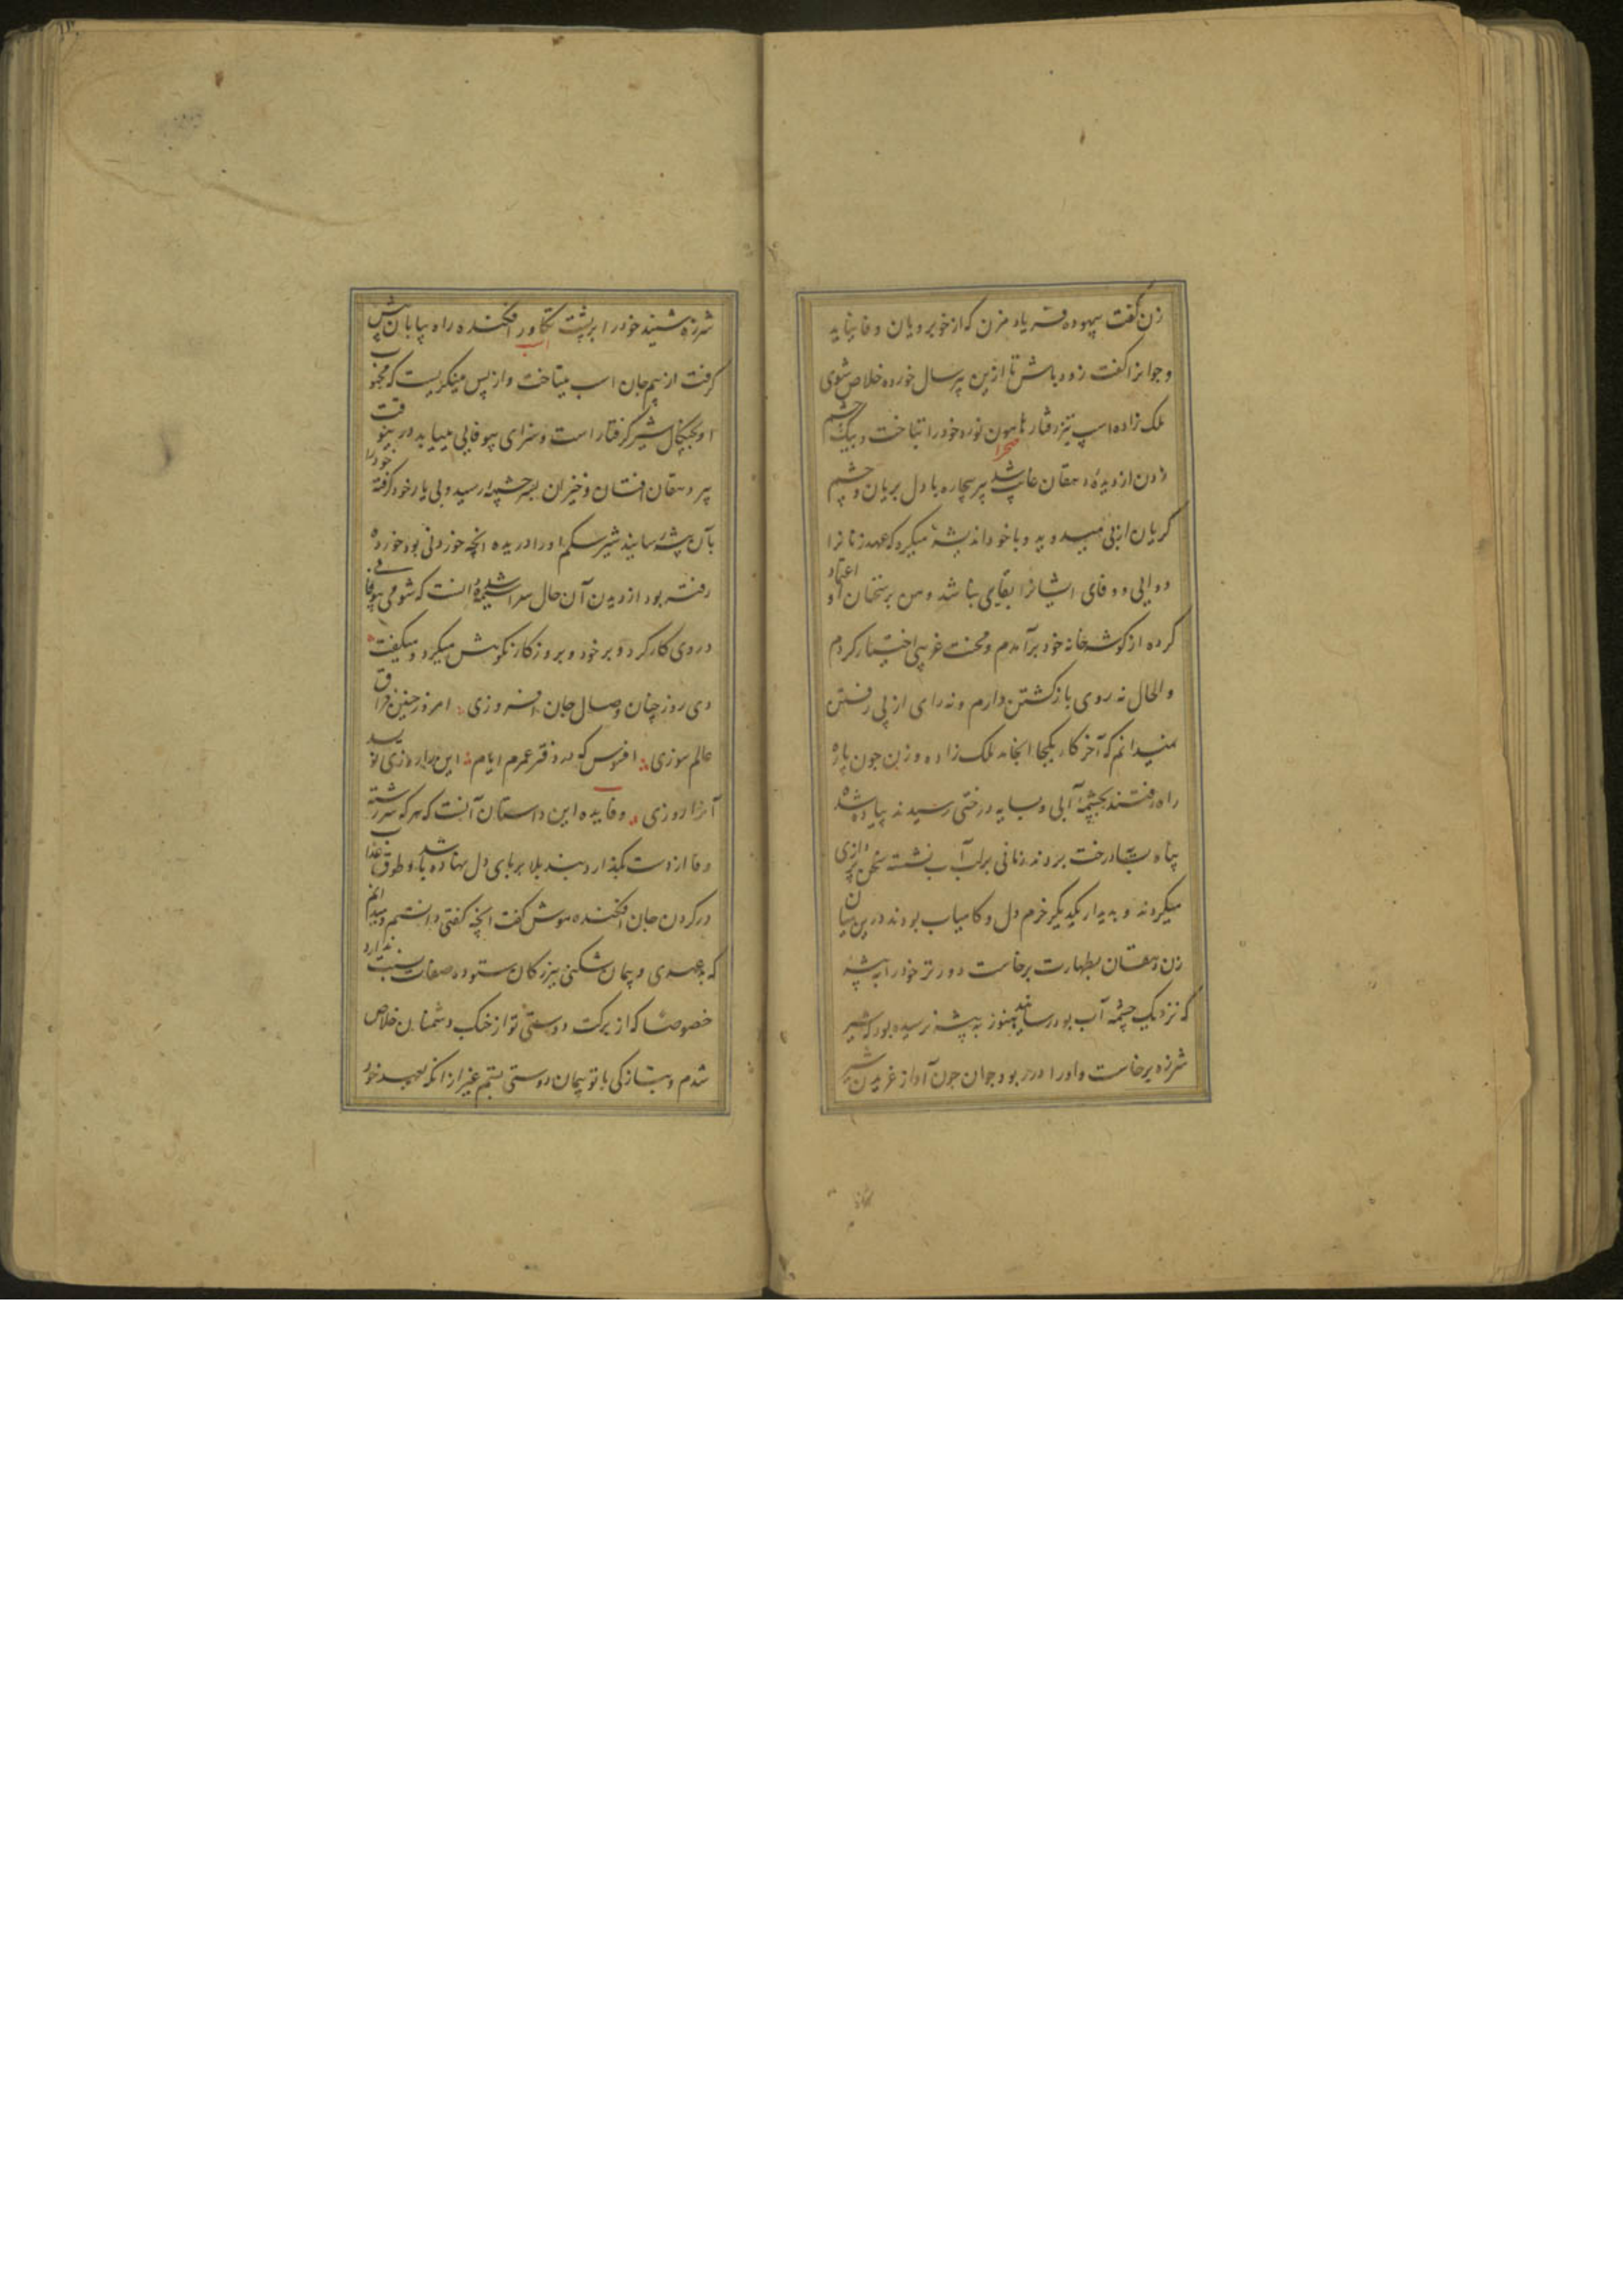 زن گفت بیهوده فریاد مزن که از خوبرویان وفا نیاید
و جوانرا گفت زود باش تا ازین پیر سال خورده خلاص شوی
ملک زاده اسپ تیز رفتار هامون نورد خود را بتاخت و بیک چشم
صحرا
زدن از دیدهٔ دهقان غایب شد پیر بیچاره با دل بریان و چشم
کریان از پی میدوید و با خود اندیشه میکرد که عهد زنانرا
دوایی و وفای ایشانرا بقای نباشد و من بر سخنان او اعتماد
کرده از کوشه خانه خود برآمدم و محنت غریبی اختیار کردم
والحال نه روی بازکشتن دارم و نه رای از پی رفتن
نمیدانم که آخر کار بکجا انجامد ملک زاده و زن چون پاره
راه رفتند بچشمهٔ آبی و سایه درختی رسیدند پیاده شده
پناه بسایه درخت بردند زمانی بر لب آب نشسته سخن پردازی
میکردند و بدیدار یکدیکر خرم دل و کامیاب بودند درین میان
زن دهقان بطهارت برخاست دورتر خود را به بیشه
که نزدیک چشمه آب بود رسانید هنوز به بیشه نرسیده بود که شیر
شرزه برخاست و او را در ربود جوان چون آواز غریدن شیر
شرزه شنید خود را بر پشت تکاور افکنده راه بیابان پیش
اسب
کرفت از بیم جان اسب میتاخت و از پس مینکریست که محبوب
او بچنکال شیر کرفتار است و سزای بیوفایی مییابد درینوقت
پیر دهقان افتان و خیزان بسر چشمه رسید و پی یار خود کرفته خود را
بآن بیشه رسانید شیر شکم او را دریده آنچه خوردنی بود خورده
رفته بود از دیدن آن حال سراسیمه شد دانست که شومی بیوفایی
در وی کار کرد و بر خود و بر روزکار نکوهش میکرد و میکفت
دی روز چنان وصال جان افروزی امروز چنین فراق
عالم سوزی افسوس که در دفتر عمرم ایام این را روزی نویسد
آنرا روزی و فایده این داستان آنست که هر که سررشته
وفا از دست بکذارد بند بلا بر پای دل نهاده باشد و طوق عذاب
در کردن جان افکنده موش کفت آنچه کفتی دانستم و میدانم
که بدعهدی و پیمان شکنی ببزرکان ستوده صفات نسبت ندارد
خصوصا که از برکت دوستی تو از چنک دشمنان خلاص
شدم و بتازکی با تو پیمان دوستی بستم غیر از آنکه بعهد خود